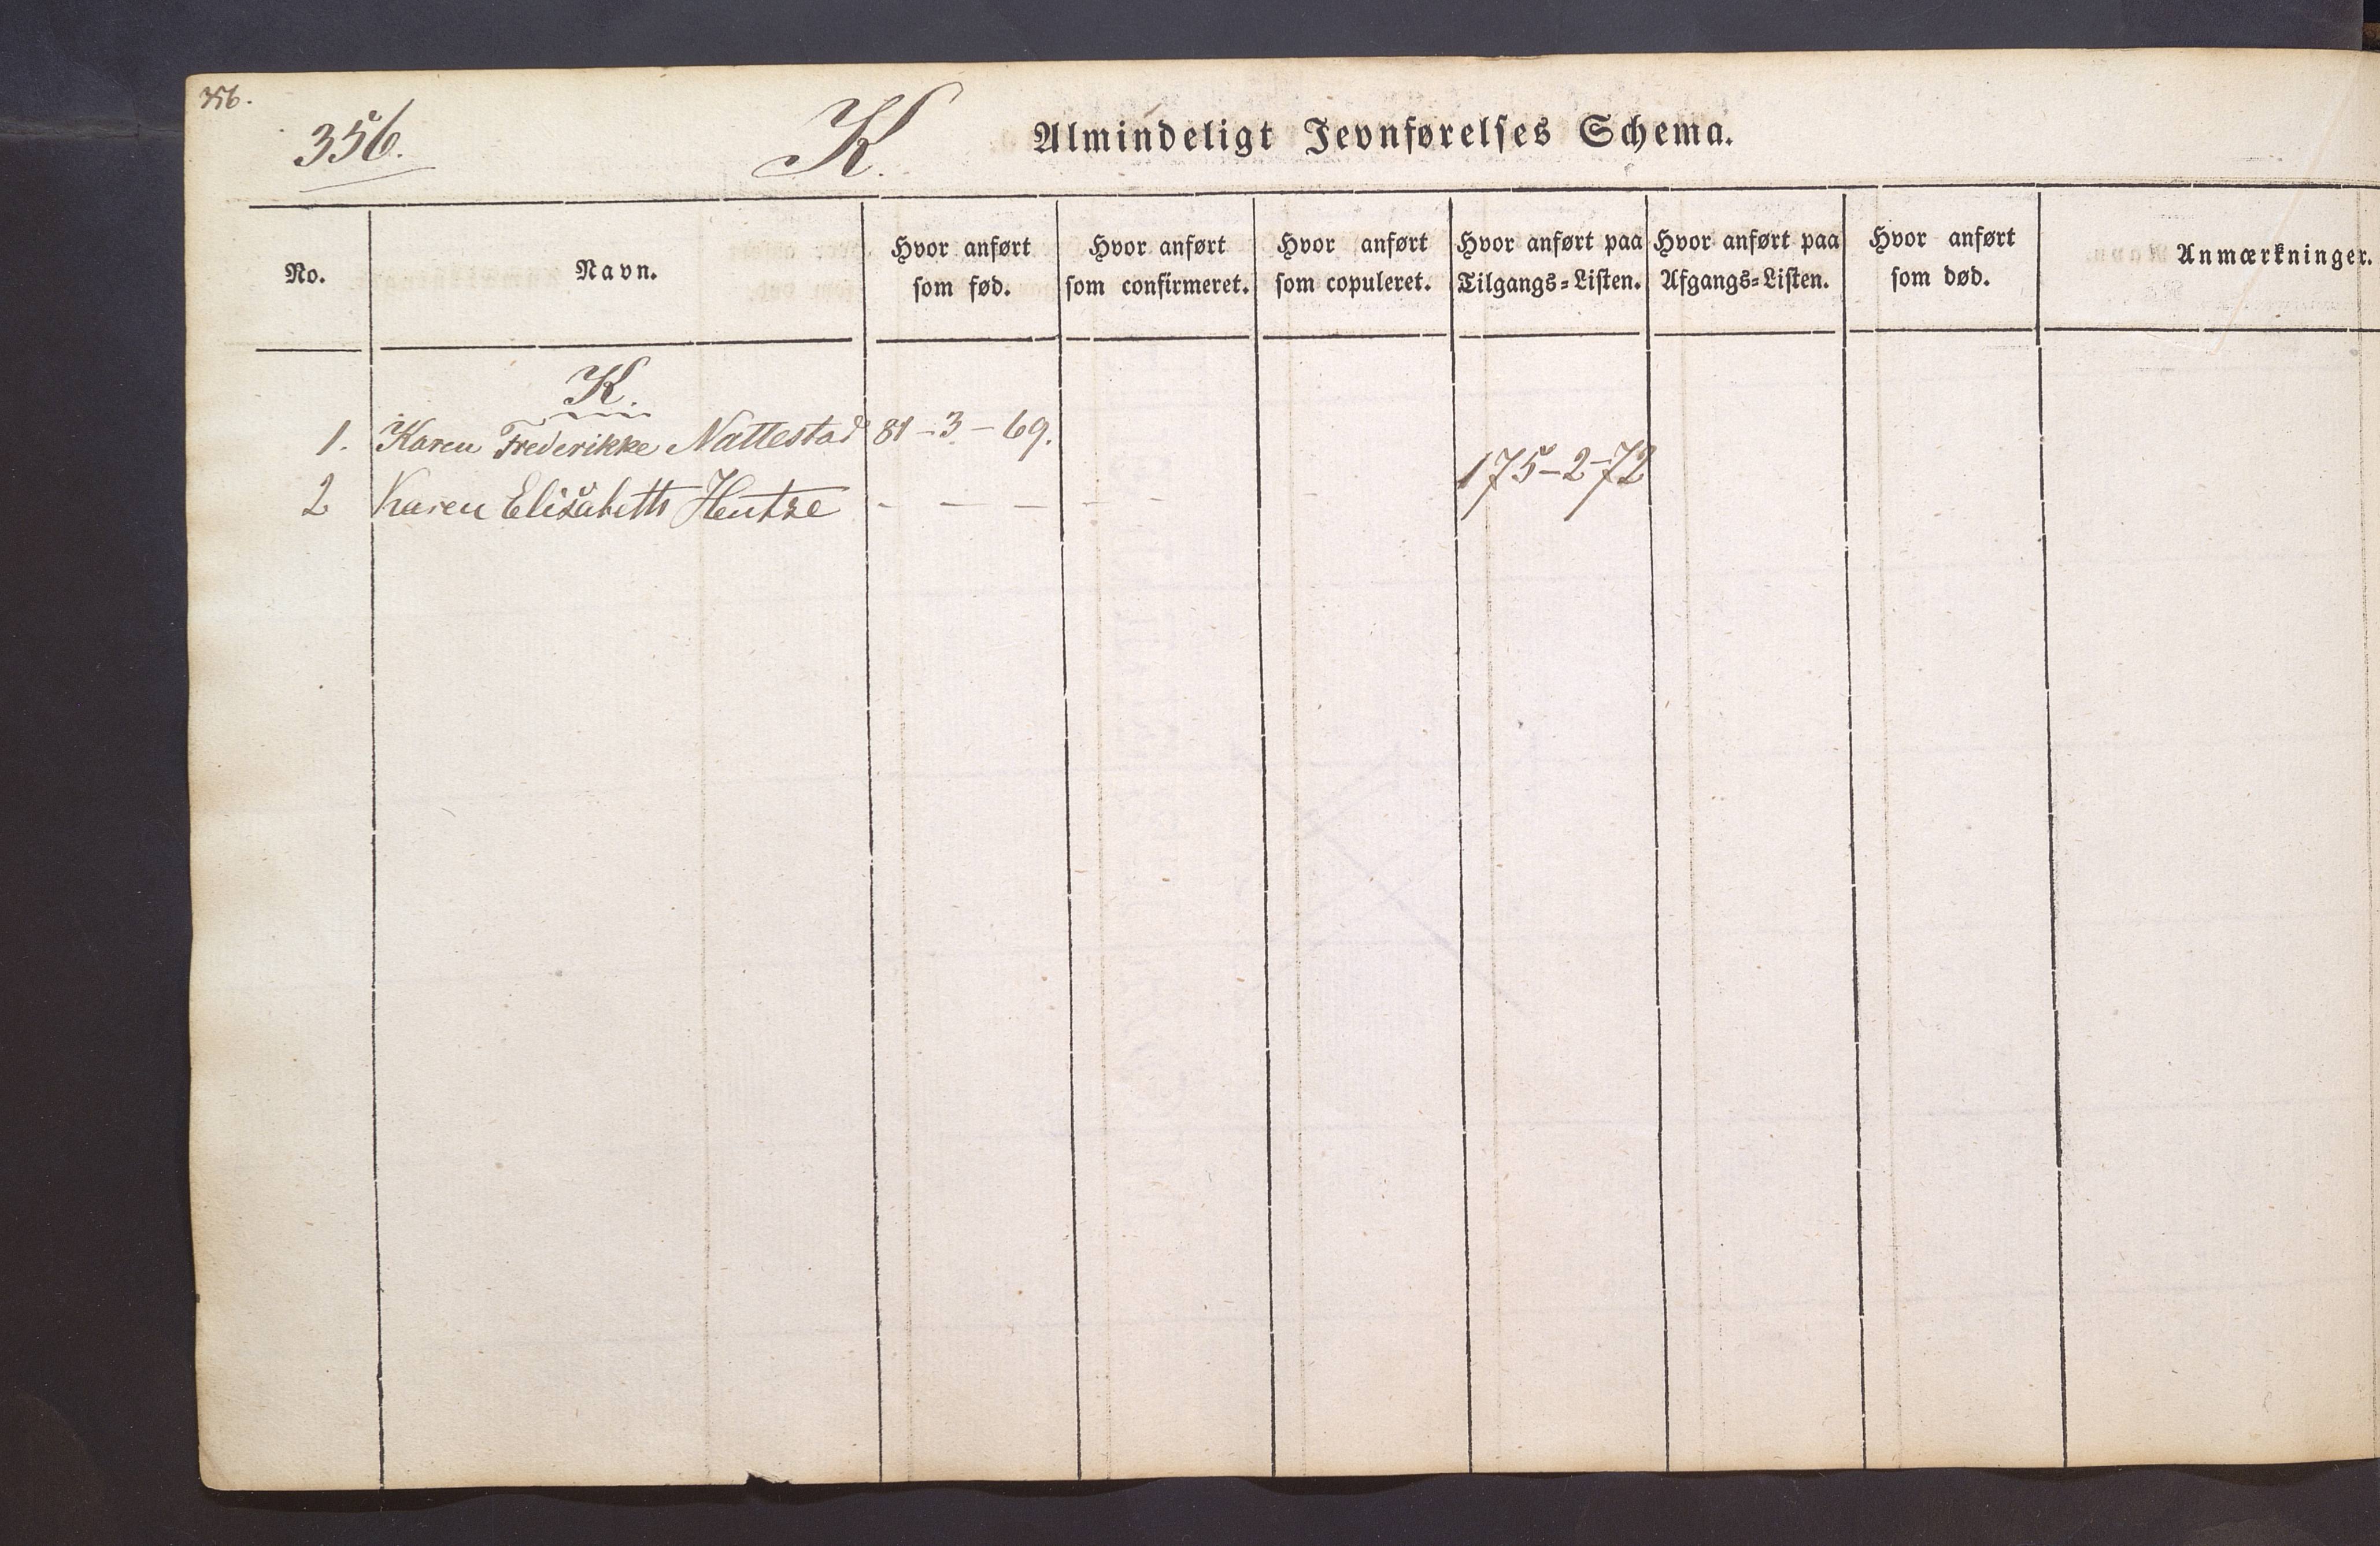 356.
356.
K.
Almindeligt Jevnførelses Schema.
No.
Navn.
Hvor anført som fød.
Hvor anført som confirmeret.
Hvor anført som copuleret.
Hvor anført paa Tilgangs=Listen.
Hvor anført paa Afgangs=Listen.
Hvor anført som død.
Anmærkninger.
K.
1. Karen Frederikke Nattestad 81-3-69.
2 Karen Elisabeth Hentze - - - - - 175-2-72